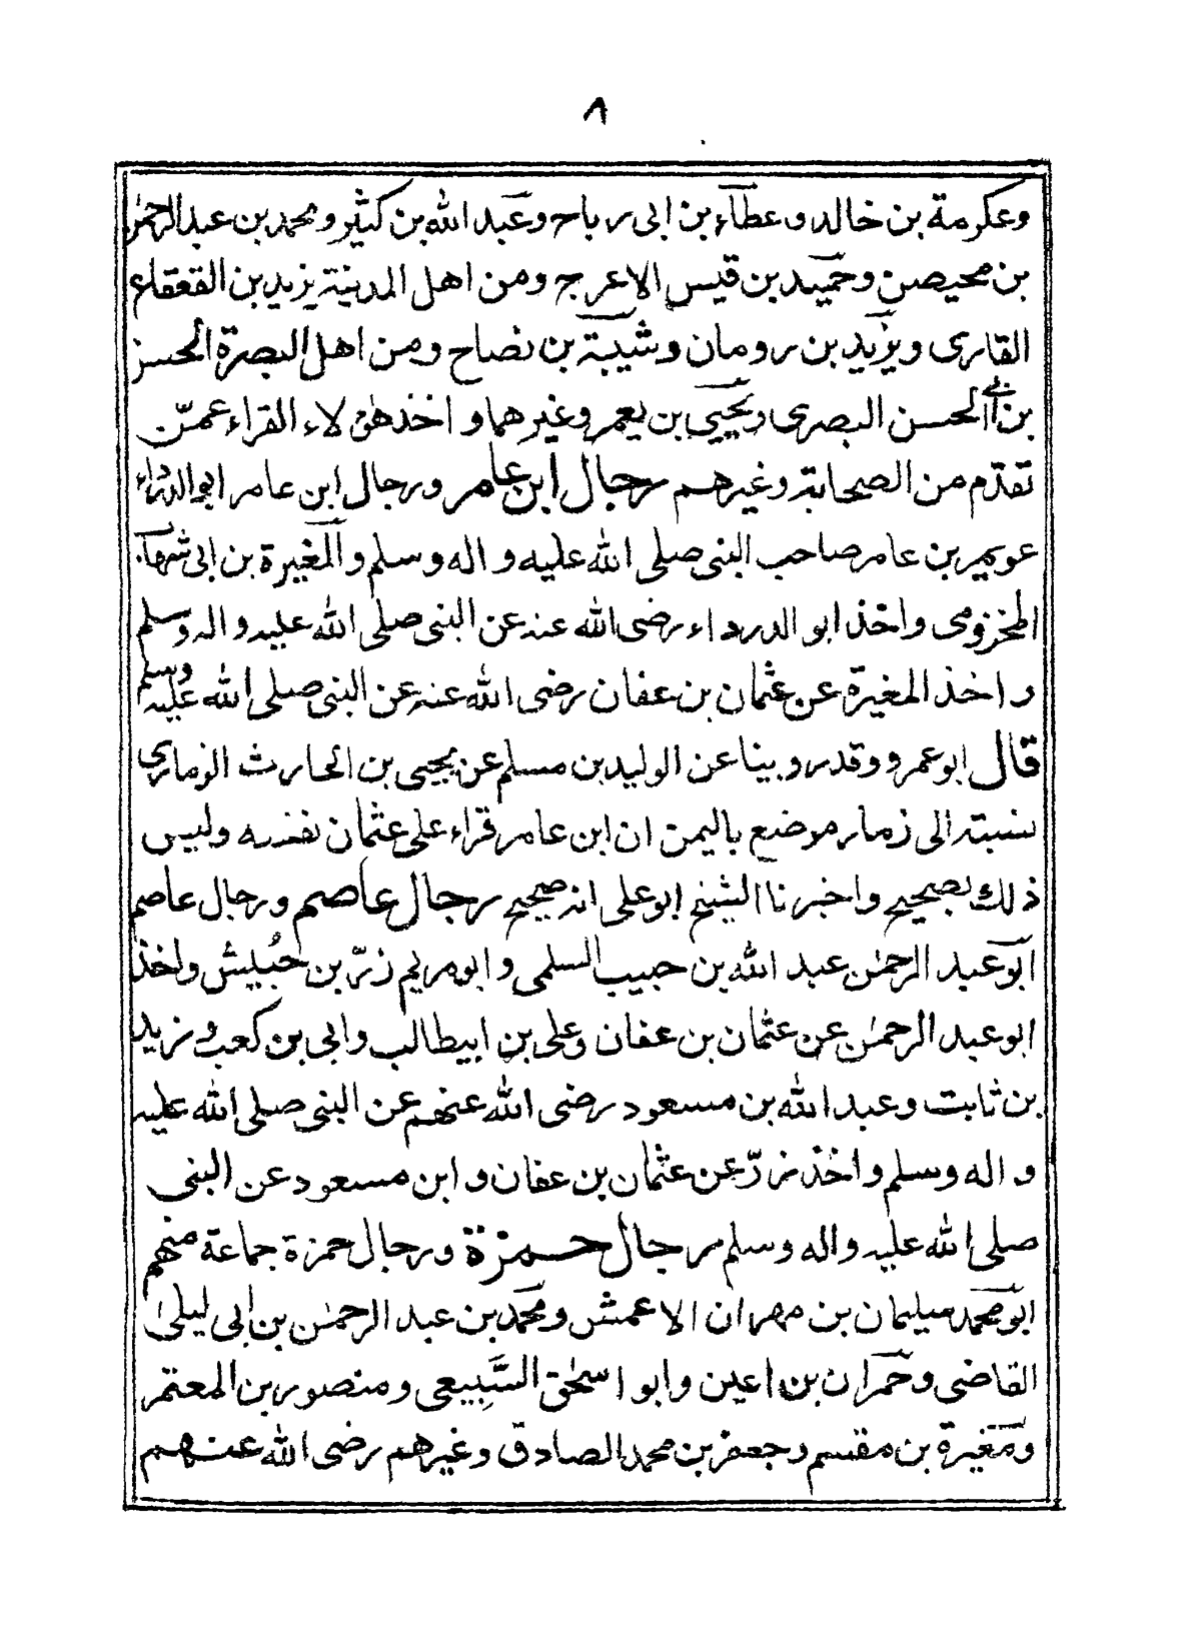 ٨
وعكرمة بن خالد وعطآء بن ابى رباح وعبد الله بن كثير ومحمد بن عبد الرحمن
بن محيصن وحميد بن قيس الاعرج ومن اهل المدينة يزيد بن القعقاع
القارى ويزيد بن رومان وشيبة بن نصاح ومن اهل البصرة الحسن
بن ابى الحسن البصرى ويحيى بن يعمر وغيرهما واخذ هؤلاء القراء عمّن
تقدّم من الصحابة وغيرهم رجال ابن عامر ورجال ابن عامر ابو الدرداء
عويمر بن عامر صاحب النبى صلى الله عليه واله وسلم والمغيرة بن ابى شهاب
المخزومى واخذ ابو الدرداء رضى الله عنه عن النبى صلى الله عليه واله وسلم
واخذ المغيرة عن عثمان بن عفان رضى الله عنه عن النبى صلى الله عليه وسلم
قال ابو عمرو وقد روينا عن الوليد بن مسلم عن يحيى بن الحارث الزمارى
نسبته الى زمار موضع باليمن ان ابن عامر قراء على عثمان نفسه وليس
ذلك بصحيح واخبرنا الشيخ ابو على انه صحيح رجال عاصم ورجال عاصم
ابو عبد الرحمٰن عبد الله بن حبيب السلمى وابو مريم زرّ بن حُبيش واخذ
ابو عبد الرحمٰن عن عثمان بن عفان وعلى بن ابيطالب وابى بن كعب وزيد
بن ثابت وعبد الله بن مسعود رضى الله عنهم عن النبى صلى الله عليه
واله وسلم واخذ زرّ عن عثمان بن عفان وابن مسعود عن النبى
صلى الله عليه واله وسلم رجال حمزة ورجال حمزة جماعة منهم
ابو محمد سليمان بن مهران الاعمش ومحمد بن عبد الرحمٰن بن ابى ليلىٰ
القاضى وحمران بن اعين وابو اسحٰق السَّبِيعى ومنصور بن المعتمر
ومغيرة بن مقسم وجعفر بن محمد الصادق وغيرهم رضى الله عنهم